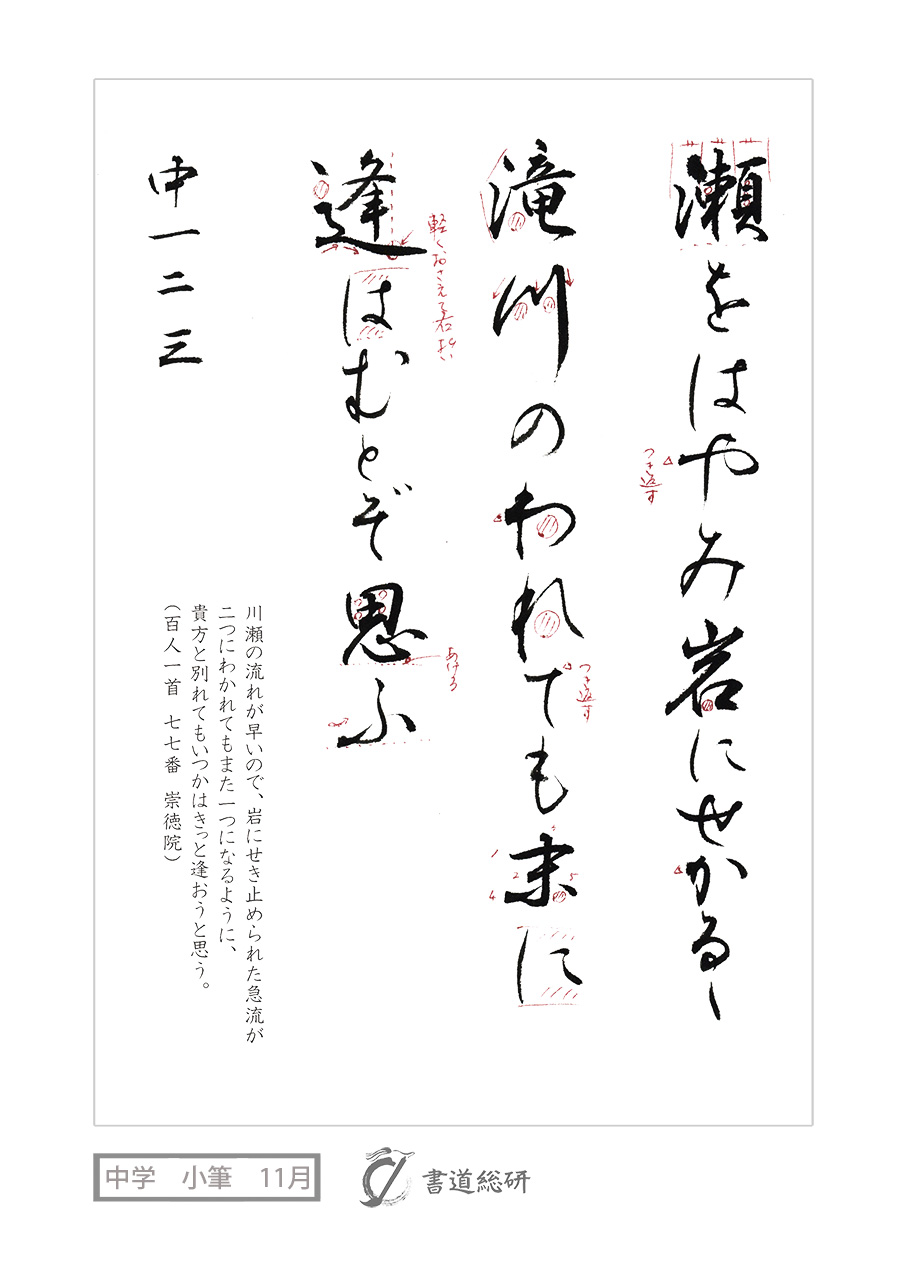 瀬をはやみ岩にせかるゝ
滝川のわれても末に
逢はむとぞ思ふ
中一二三
つき返す
つき返す
軽くおさえて右払い
あける
1
2
4
5
川瀬の流れが早いので、岩にせき止められた急流が
二つにわかれてもまた一つになるように、
貴方と別れてもいつかはきっと逢おうと思う。
(百人一首 七七番 崇徳院)
中学 小筆 11月
書道総研